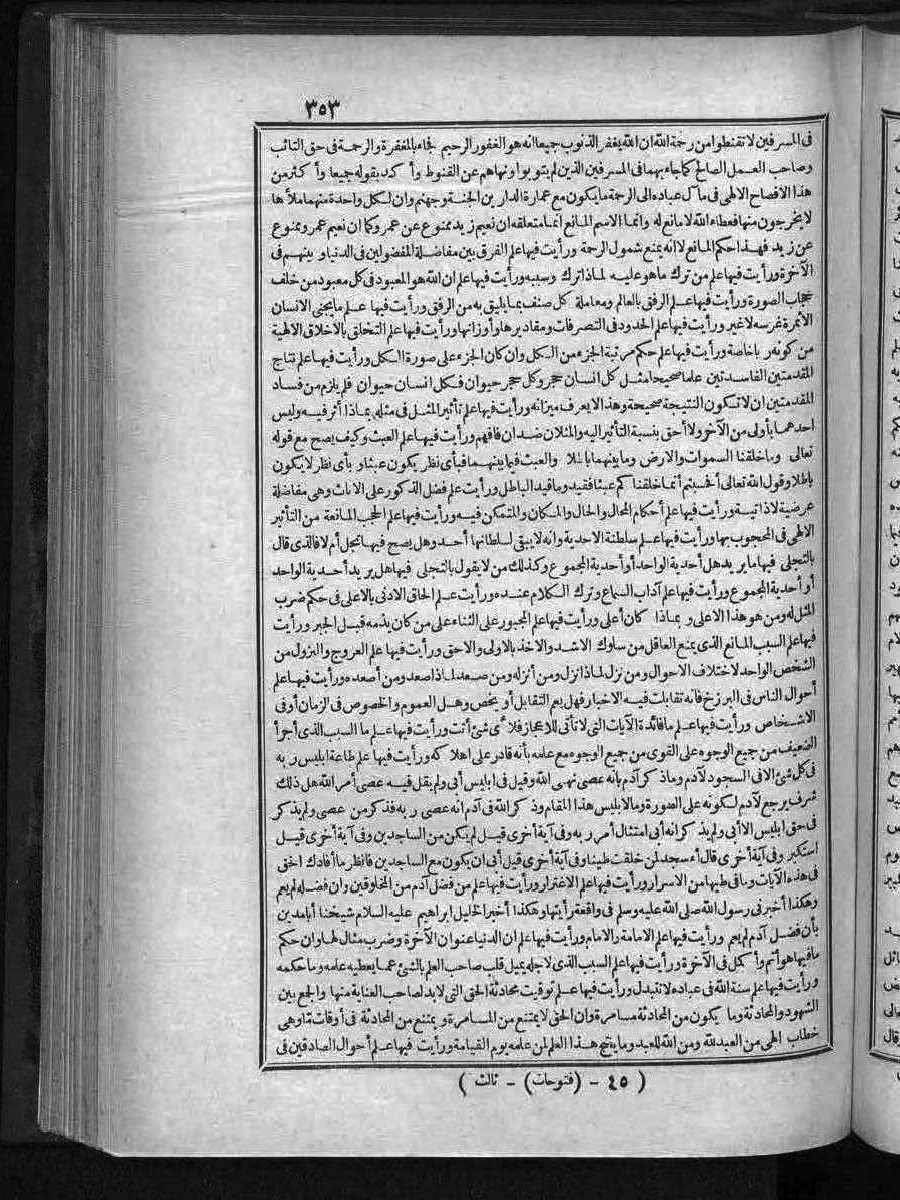 ٣٥٣
فى المسرفين لا تقنطوا من رحمة الله ان الله يغفر الذنوب جميعا انه هو الغفور الرحيم فجاء بالمغفرة والرحمة فى حق التائب
وصاحب العمل الصالح كما جاء بهما فى المسرفين الذين لم يتوبوا ونهاهم عن القنوط وأكد بقوله جميعا وأكثر من
هذا الافصاح الالهى فى مآل عباده الى الرحمة ما يكون مع عمارة الدارين الجنة وجهنم وان لكل واحدة منهما ملأها
لا يخرجون منها فعطاء الله لا مانع له وانما الاسم المانع انما متعلقه ان نعيم زيد ممنوع عن عمرو كما ان نعيم عمرو ممنوع
عن زيد فهذا حكم المانع لا انه يمنع شمول الرحمة ورأيت فيها علم الفرق بين مفاضلة المفضولين فى الدنيا وبينهم فى
الآخرة ورأيت فيها علم من ترك ما هو عليه لماذا ترك وسببه ورأيت فيها علم ان الله هو المعبود فى كل معبود من خلف
حجاب الصورة ورأيت فيها علم الرفق بالعالم ومعاملة كل صنف بما يليق به من الرفق ورأيت فيها علم ما يجنى الانسان
الا ثمرة غرسه لا غير ورأيت فيها علم الحدود فى التصرفات ومقاديرها وأوزانها ورأيت فيها علم التخلق بالاخلاق الالهية
من كونه ربا خاصة ورأيت فيها علم حكم مرتبة الجزء من الكل وان كان الجزء على صورة الكل ورأيت فيها علم نتاج
المقدمتين الفاسدتين علما صحيحا مثل كل انسان حجر وكل حجر حيوان فكل انسان حيوان فلم يلزم من فساد
المقدمتين ان لا تكون النتيجة صحيحة وهذا لا يعرف ميزانه ورأيت فيها علم تأثير المثل فى مثله بماذا أثر فيه وليس
احدهما بأولى من الآخر ولا أحق بنسبة التأثير اليه والمثلان ضدان فافهم ورأيت فيها علم العبث وكيف يصح مع قوله
تعالى وما خلقنا السموات والارض وما بينهما باطلا والعبث فيما بينهما فبأى نظر يكون عبثا وبأى نظر لا يكون
باطلا وقول الله تعالى أفحسبتم أنما خلقناكم عبثا فقيد وما قيد الباطل ورأيت علم فضل الذكور على الاناث وهى مفاضلة
عرضية لا ذاتية ورأيت فيها علم أحكام المحال والحال والمكان والمتمكن فيه ورأيت فيها علم الحجب المانعة من التأثير
الالهى فى المحجوب بها ورأيت فيها علم سلطنة الاحدية وانه لا يبقى لسلطانها أحد وهل يصح فيها تجل أم لا فالذى قال
بالتجلى فيها ما يريد هل أحدية الواحد أو أحدية المجموع وكذلك من لا يقول بالتجلى فيها هل يريد أحدية الواحد
أو أحدية المجموع ورأيت فيها علم آداب السماع وترك الكلام عنده ورأيت علم الحاق الادنى بالاعلى فى حكم ضرب
المثل له ومن هو هذا الاعلى وبماذا كان أعلى ورأيت فيها علم المجبور على الثناء على من كان يذمه قبل الجبر ورأيت
فيها علم السبب المانع الذى يمنع العاقل من سلوك الاشد والاخذ بالاولى والاحق ورأيت فيها علم العروج والنزول من
الشخص الواحد لاختلاف الاحوال ومن نزل لماذا نزل ومن أنزله ومن صعد لماذا صعد ومن أصعده ورأيت فيها علم
أحوال الناس فى البرزخ فانه تقابلت فيه الاخبار فهل يعم التقابل أو يخص وهل العموم والخصوص فى الزمان أو فى
الاشخاص ورأيت فيها علم ما فائدة الآيات التى لا تأتى للاعجاز فلأى شئ أتت ورأيت فيها علم ما السبب الذى أجرأ
الضعيف من جميع الوجوه على القوى من جميع الوجوه مع علمه بأنه قادر على اهلاكه ورأيت فيها علم طاعة ابليس ربه
فى كل شئ الا فى السجود لآدم وما ذكر آدم بانه عصى نهى الله وقيل فى ابليس أبى ولم يقل فيه عصى أمر الله هل ذلك
شرف يرجع لآدم لكونه على الصورة وما لابليس هذا المقام وذكر الله فى آدم انه عصى ربه فذكر من عصى ولم يذكر
فى حق ابليس الا أبى ولم يذكر انه أبى امتثال أمر ربه وفى آية أخرى قيل لم يكن من الساجدين وفى آية أخرى قيل
استكبر وفى آية أخرى قال أأسجد لمن خلقت طينا وفى آية أخرى قيل أبى ان يكون مع الساجدين فانظر ما أفادك الحق
فى هذه الآيات وما فى طيها من الاسرار ورأيت فيها علم الاغترار ورأيت فيها علم من فضل آدم من المخلوقين وان فضله لم يعم
وهكذا أخبرنى رسول الله صلى الله عليه وسلم فى واقعة رأيتها وهكذا أخبر الخليل ابراهيم عليه السلام شيخنا أبا مدين
بأن فضل آدم لم يعم ورأيت فيها علم الامامة والامام ورأيت فيها علم ان الدنيا عنوان الآخرة وضرب مثال لها وان حكم
ما فيها هو أتم وأكمل فى الآخرة ورأيت فيها علم السبب الذى لاجله يميل قلب صاحب العلم بالشئ عما يعطيه علمه وما حكمه
ورأيت فيها علم سنة الله فى عباده لا تتبدل ورأيت فيها علم توقيت محادثة الحق التى لا بد لصاحب العناية منها والجمع بين
الشهود والمحادثة وما يكون من المحادثة مسامرة وان الحق لا يمتنع من المسامرة ويمتنع من المحادثة فى أوقات ما وهى
خطاب الهى من العبد لله ومن الله للعبد وما ينتج هذا العلم لمن علمه يوم القيامة ورأيت فيها علم أحوال الصادقين فى
( ٤٥ - (فتوحات) - ثالث )